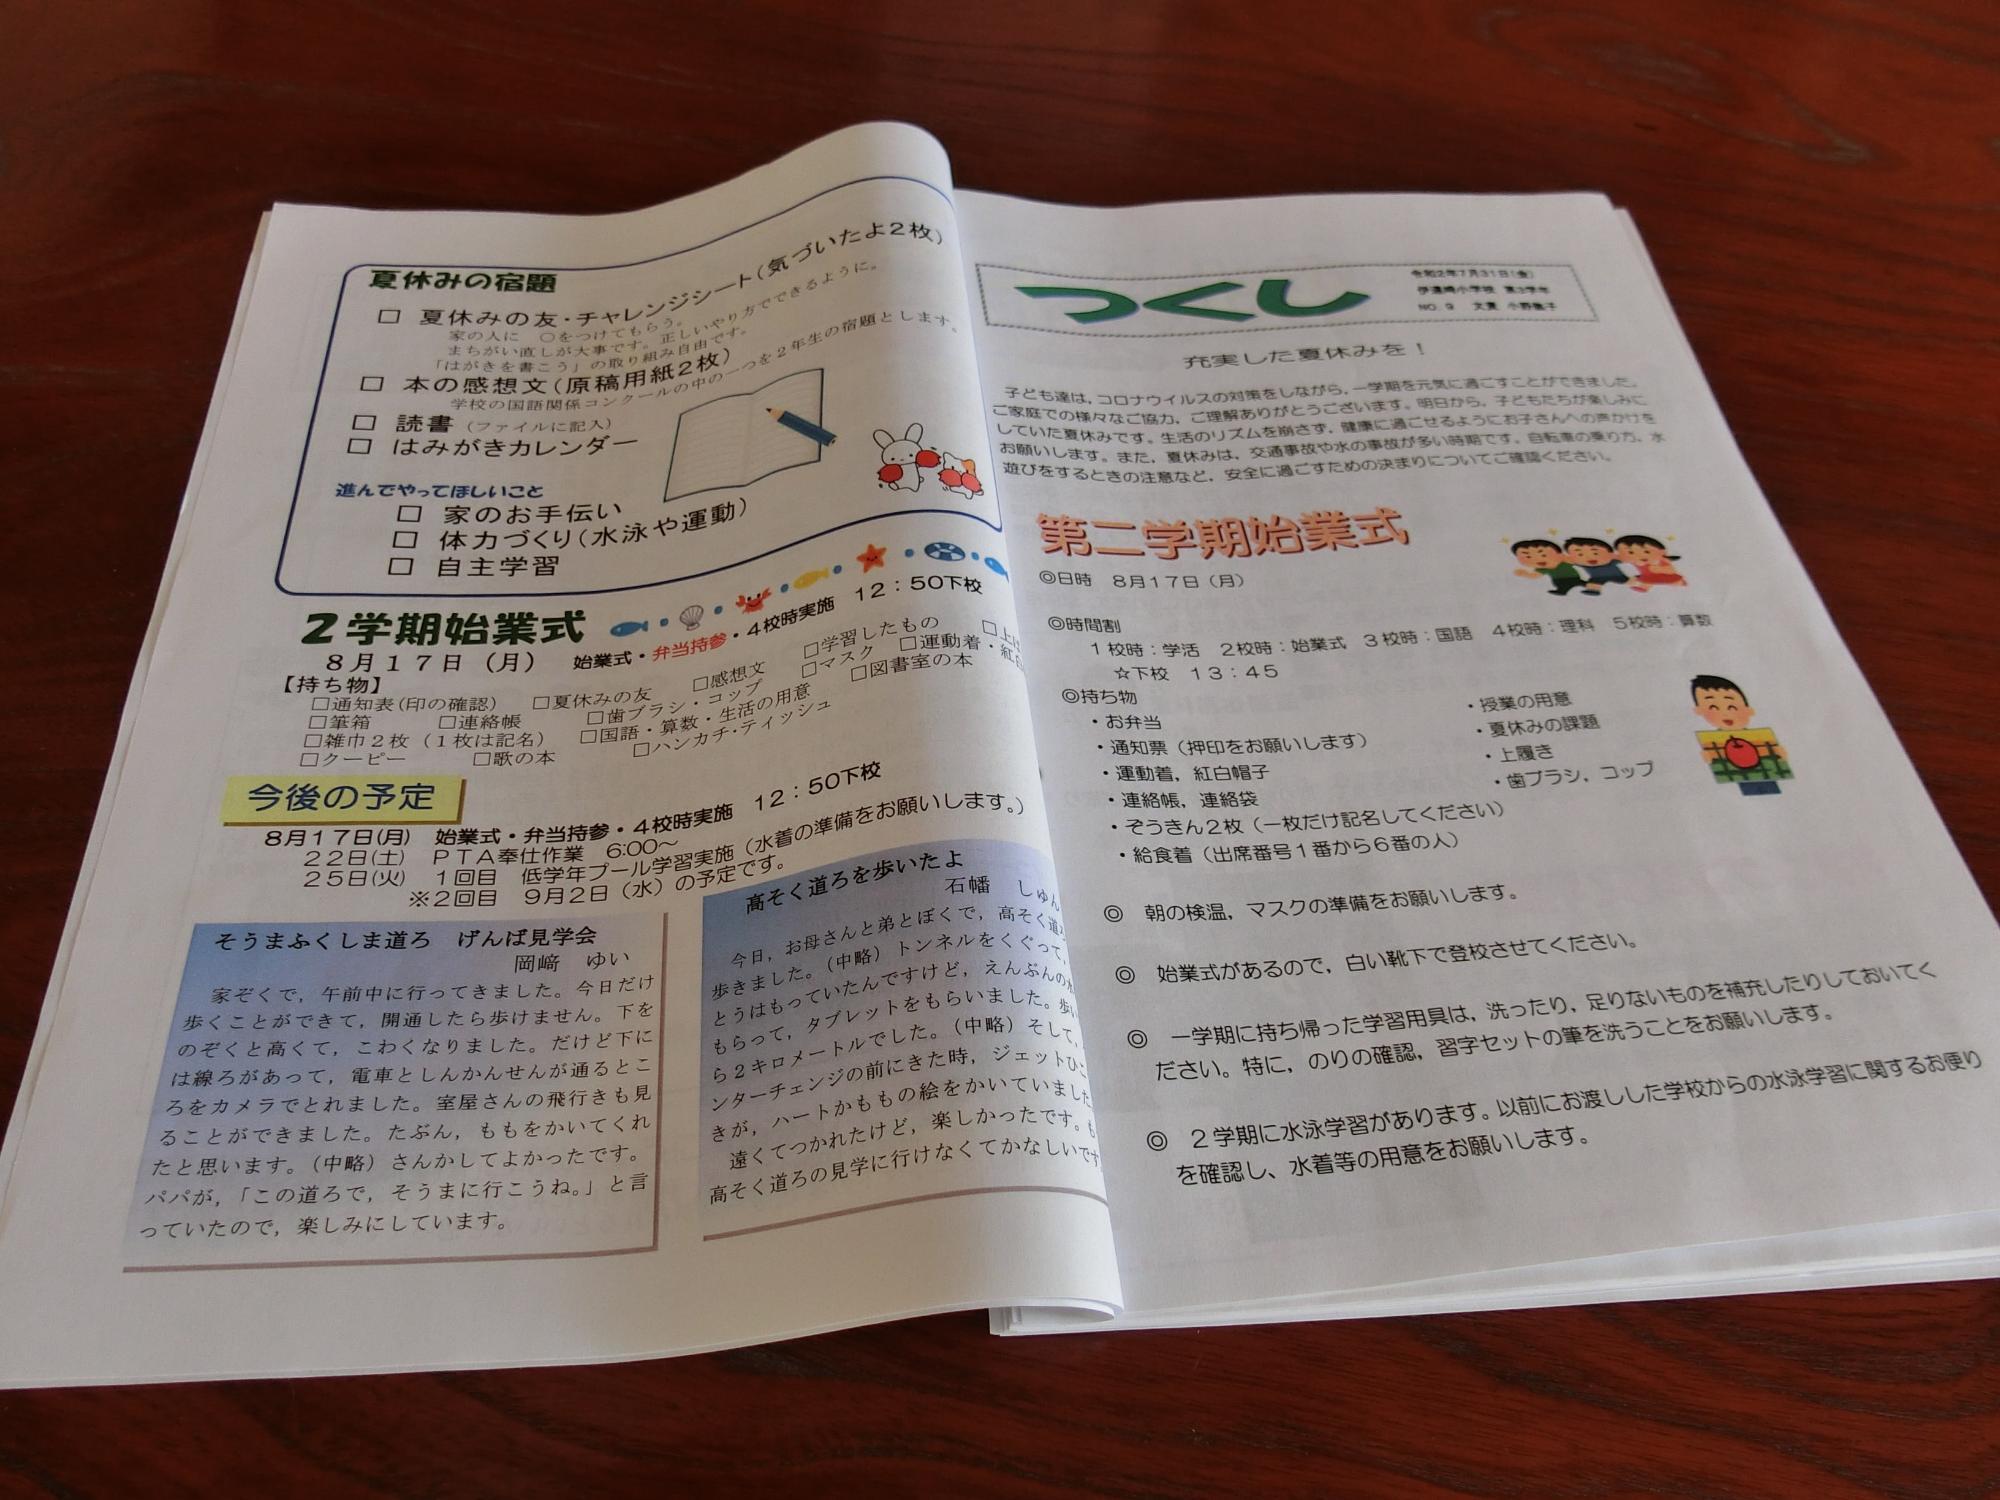 夏休みの宿題
□ 夏休みの友・チャレンジシート(気づいたよ2枚)
家の人に ○をつけてもらう。
まちがい直しが大事です。正しいやり方でできるように。
「はがきを書こう」の取り組み自由です。
□ 本の感想文(原稿用紙2枚)
学校の国語関係コンクールの中の一つを2年生の宿題とします。
□ 読書(ファイルに記入)
□ はみがきカレンダー
進んでやってほしいこと
□ 家のお手伝い
□ 体力づくり(水泳や運動)
□ 自主学習
2学期始業式
8月17日(月) 始業式・弁当持参・4校時実施 12:50下校
【持ち物】
□通知表(印の確認) □夏休みの友 □感想文 □学習したもの □上
□筆箱 □連絡帳 □歯ブラシ・コップ □マスク □運動着・紅白
□雑巾2枚(1枚は記名) □国語・算数・生活の用意 □図書室の本
□クーピー □歌の本 □ハンカチ・ティッシュ
今後の予定
8月17日(月) 始業式・弁当持参・4校時実施 12:50下校
22日(土) PTA奉仕作業 6:00～
25日(火) 1回目 低学年プール学習実施(水着の準備をお願いします。)
※2回目 9月2日(水)の予定です。
そうまふくしま道ろ げんば見学会
岡﨑 ゆい
家ぞくで，午前中に行ってきました。今日だけ
歩くことができて，開通したら歩けません。下を
のぞくと高くて，こわくなりました。だけど下に
は線ろがあって，電車としんかんせんが通るとこ
ろをカメラでとれました。室屋さんの飛行きも見
ることができました。たぶん，ももをかいてくれ
たと思います。(中略)さんかしてよかったです。
パパが，「この道ろで，そうまに行こうね。」と言
っていたので，楽しみにしています。
高そく道ろを歩いたよ
石幡 しゅん
今日，お母さんと弟とぼくで，高そく道ろ
歩きました。(中略)トンネルをくぐって，
とうはもっていたんですけど，えんぷんの
もらって，タブレットをもらいました。歩
ら2キロメートルでした。(中略)そして，
ンターチェンジの前にきた時，ジェットひこ
きが，ハートかももの絵をかいていました
遠くてつかれたけど，楽しかったです。も
高そく道ろの見学に行けなくてかなしいです
つくし
令和2年7月31日(金)
伊達崎小学校 第3学年
NO.9 文責
充実した夏休みを！
子ども達は，コロナウイルスの対策をしながら，一学期を元気に過ごすことができました。
ご家庭での様々なご協力，ご理解ありがとうございます。明日から，子どもたちが楽しみに
していた夏休みです。生活のリズムを崩さず，健康に過ごせるようにお子さんへの声かけを
お願いします。また，夏休みは，交通事故や水の事故が多い時期です。自転車の乗り方，水
遊びをするときの注意など，安全に過ごすための決まりについてご確認ください。
第二学期始業式
◎日時 8月17日(月)
◎時間割
1校時：学活 2校時：始業式 3校時：国語 4校時：理科 5校時：算数
☆下校 13：45
◎持ち物
・お弁当 ・授業の用意
・通知票(押印をお願いします) ・夏休みの課題
・運動着，紅白帽子 ・上履き
・連絡帳，連絡袋 ・歯ブラシ，コップ
・ぞうきん2枚(一枚だけ記名してください)
・給食着(出席番号1番から6番の人)
◎ 朝の検温，マスクの準備をお願いします。
◎ 始業式があるので，白い靴下で登校させてください。
◎ 一学期に持ち帰った学習用具は，洗ったり，足りないものを補充したりしておいてく
ださい。特に，のりの確認，習字セットの筆を洗うことをお願いします。
◎ 2学期に水泳学習があります。以前にお渡しした学校からの水泳学習に関するお便り
を確認し、水着等の用意をお願いします。